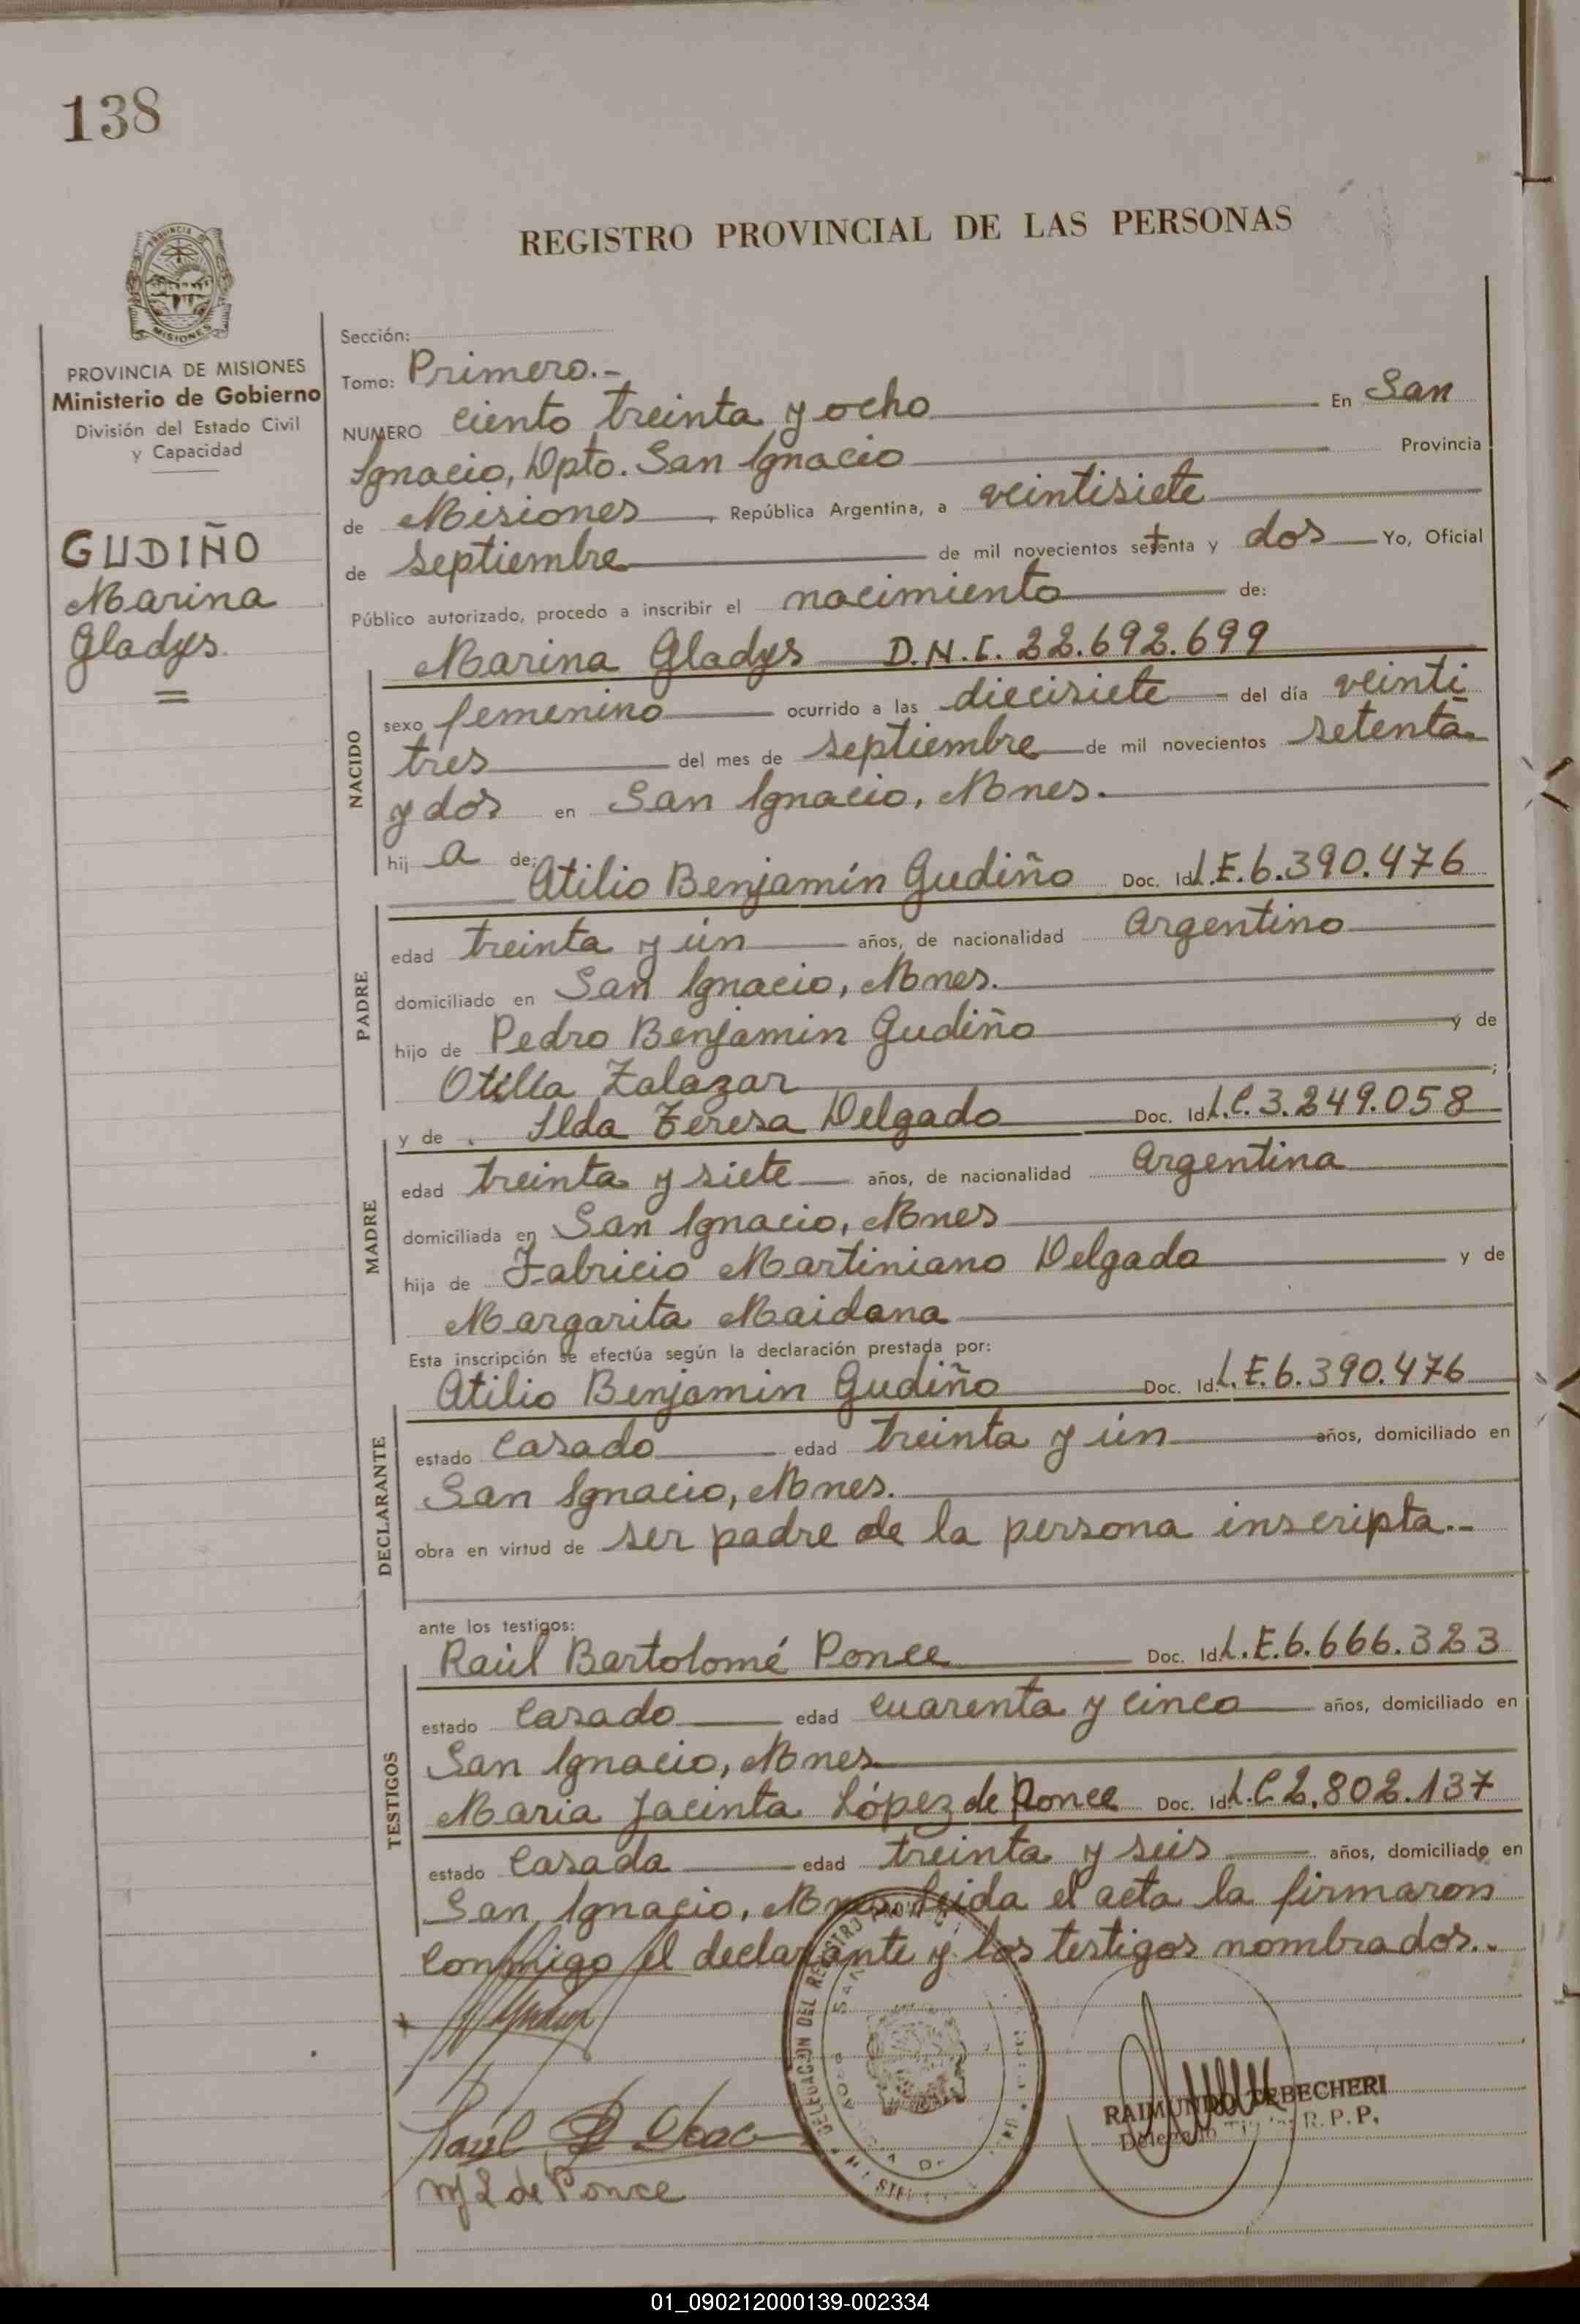 138
REGISTRO PROVINCIAL DE LAS PERSONAS
PROVINCIA DE
MISIONES
PROVINCIA DE MISIONES
Ministerio de Gobierno
División del Estado Civil
y Capacidad
GUDIÑO
Marina
Gladys
=
Sección:
Tomo: Primero.-
NUMERO ciento treinta y ocho En San
Ignacio, Dpto. San Ignacio Provincia
de Misiones, República Argentina, a veintisiete
de septiembre de mil novecientos setenta y dos Yo, Oficial
Público autorizado, procedo a inscribir el nacimiento de:
Marina Gladys D.N.I. 22.692.699
NACIDO
sexo femenino ocurrido a las diecisiete del día veinti
tres del mes de septiembre de mil novecientos setenta
y dos en San Ignacio, Mnes.
hij a de: Atilio Benjamín Gudiño Doc. Id. L.E. 6.390.476
PADRE
edad treinta y ún años, de nacionalidad Argentino
domiciliado en San Ignacio, Mnes.
hijo de Pedro Benjamin Gudiño y de
Otilia Zalazar;
y de Ilda Teresa Delgado Doc. Id. L.C. 3.249.058
MADRE
edad treinta y siete años, de nacionalidad Argentina
domiciliada en San Ignacio, Mnes
hija de Fabricio Martiniano Delgado y de
Margarita Maidana
Esta inscripción se efectúa según la declaración prestada por:
Atilio Benjamin Gudiño Doc. Id. L.E. 6.390.476
DECLARANTE
estado casado edad treinta y ún años, domiciliado en
San Ignacio, Mnes.
obra en virtud de ser padre de la persona inscripta.-
ante los testigos:
Raúl Bartolomé Ponce Doc. Id. L.E. 6.666.323
TESTIGOS
estado casado edad cuarenta y cinco años, domiciliado en
San Ignacio, Mnes.
Maria Jacinta López de Ponce Doc. Id. L.C 2.802.137
estado casada edad treinta y seis años, domiciliado en
San Ignacio, Mnes. Leida el acta la firmaron
conmigo el declarante y los testigos nombrados..
DELEGACION DEL REGISTRO
Raúl
M J L de Ponce
RAIMUNDO TEBECHERI
Delegado Titular R.P.P.
01_090212000139-002334